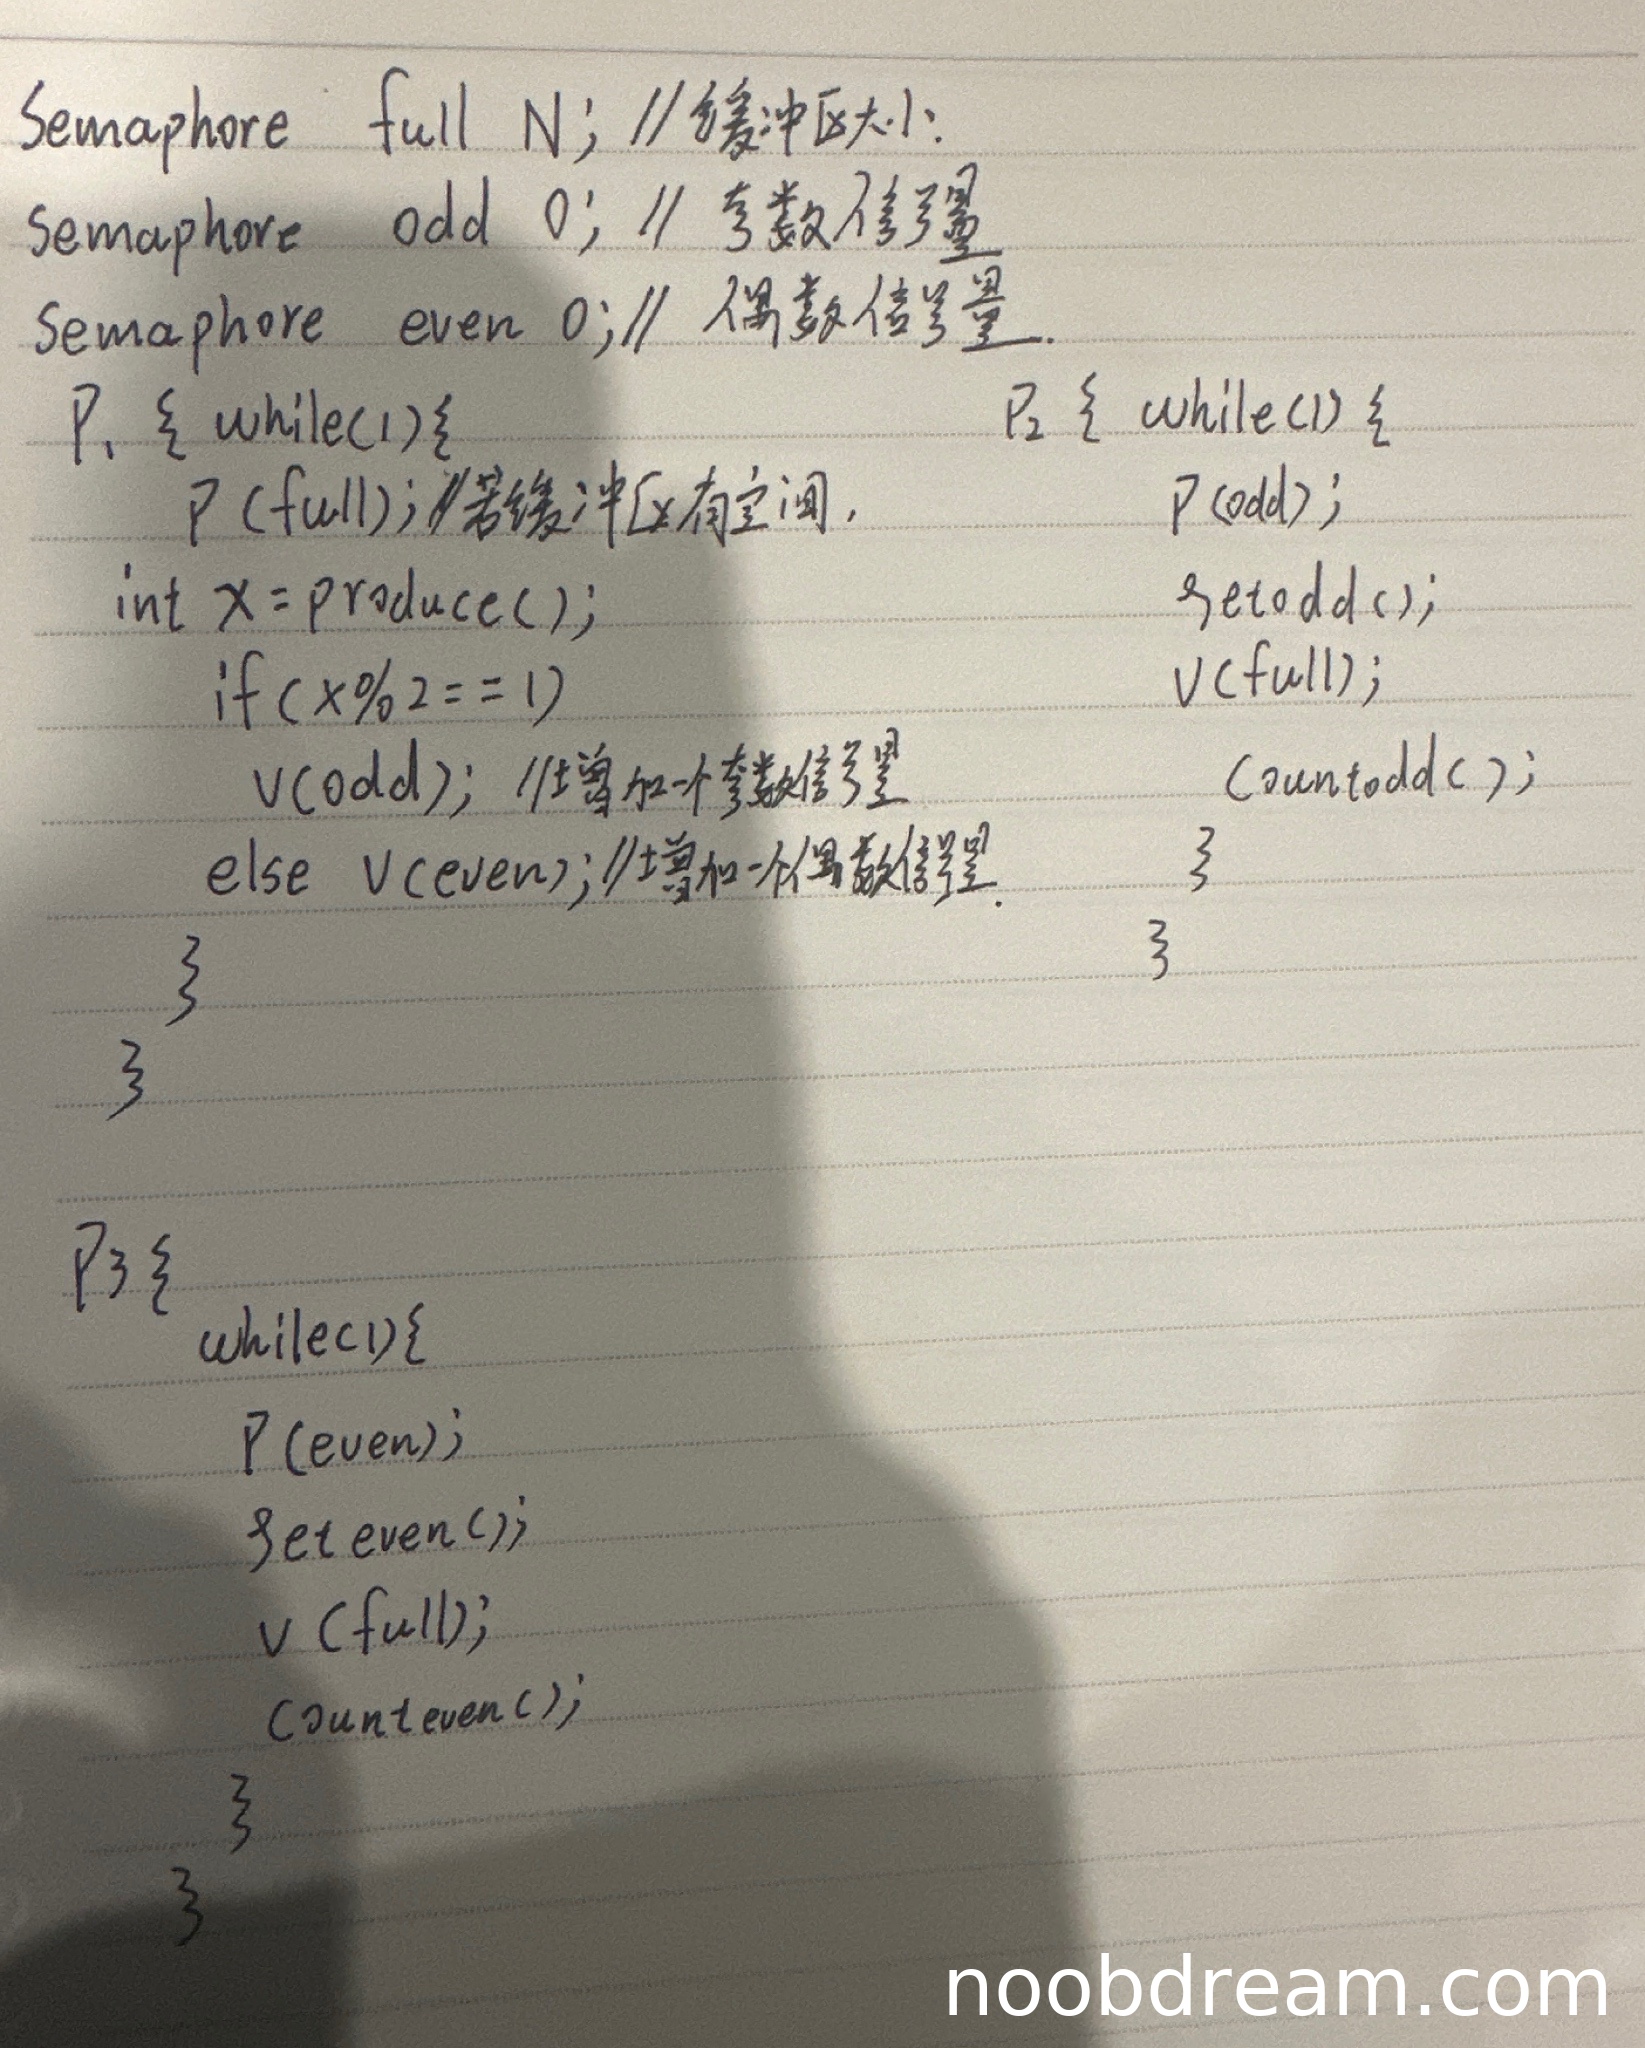 Semaphore full N; //缓冲区大小.
Semaphore odd 0; // 奇数信号量
Semaphore even 0; // 偶数信号量.
P1 { while(1){
P(full); //若缓冲区有空间.
int x=produce();
if(x%2==1)
V(odd); //增加一个奇数信号量
else V(even); //增加一个偶数信号量.
}
}
P2 { while(1) {
P(odd);
getodd();
V(full);
countodd();
}
}
P3 {
while(1){
P(even);
geteven();
V(full);
counteven();
}
}
noobdream.com